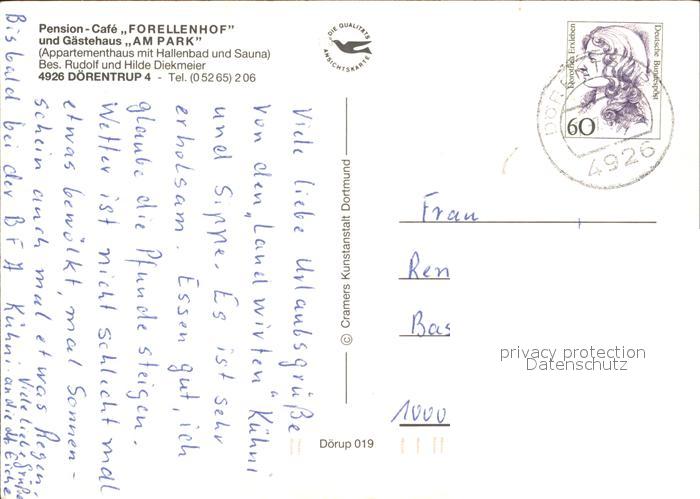 Pension-Café „FORELLENHOF"
und Gästehaus „AM PARK"
(Appartementhaus mit Hallenbad und Sauna)
Bes. Rudolf und Hilde Diekmeier
4926 DÖRENTRUP 4 - Tel. (05265) 206
DIE QUALITÄTS
ANSICHTSKARTE
Dorothea Erxleben
Deutsche Bundespost
60
DÖR
4926
Viele liebe Urlaubsgrüße
von den „Landwirten" Kühni
und Sippe. Es ist sehr
erholsam. Essen gut, ich
glaube die Pfunde steigen.
Wetter ist nicht schlecht mal
etwas bewölkt, mal Sonnen-
schein auch mal etwas Regen
Bis bald bei der BFA Kühni
Viele liebe Grüße
an die
© Cramers Kunstanstalt Dortmund
Dörup 019
Frau
Ren
Bas
1000
privacy protection
Datenschutz